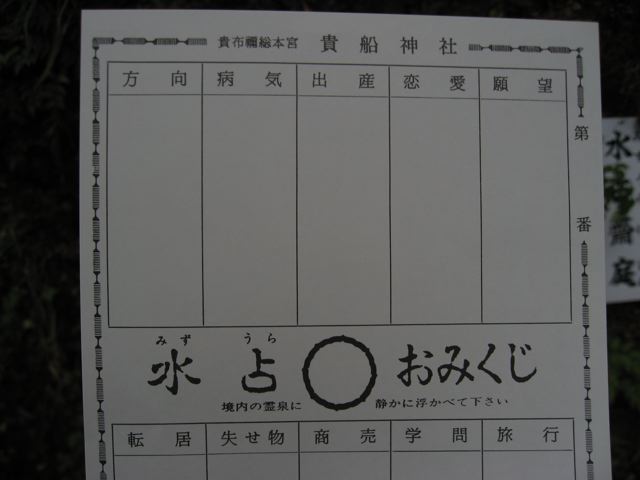 貴布禰総本宮 貴船神社
方向 病気 出産 恋愛 願望
第 番
みず うら
水占 おみくじ
境内の霊泉に 静かに浮かべて下さい
転居 失せ物 商売 学問 旅行
水
庭